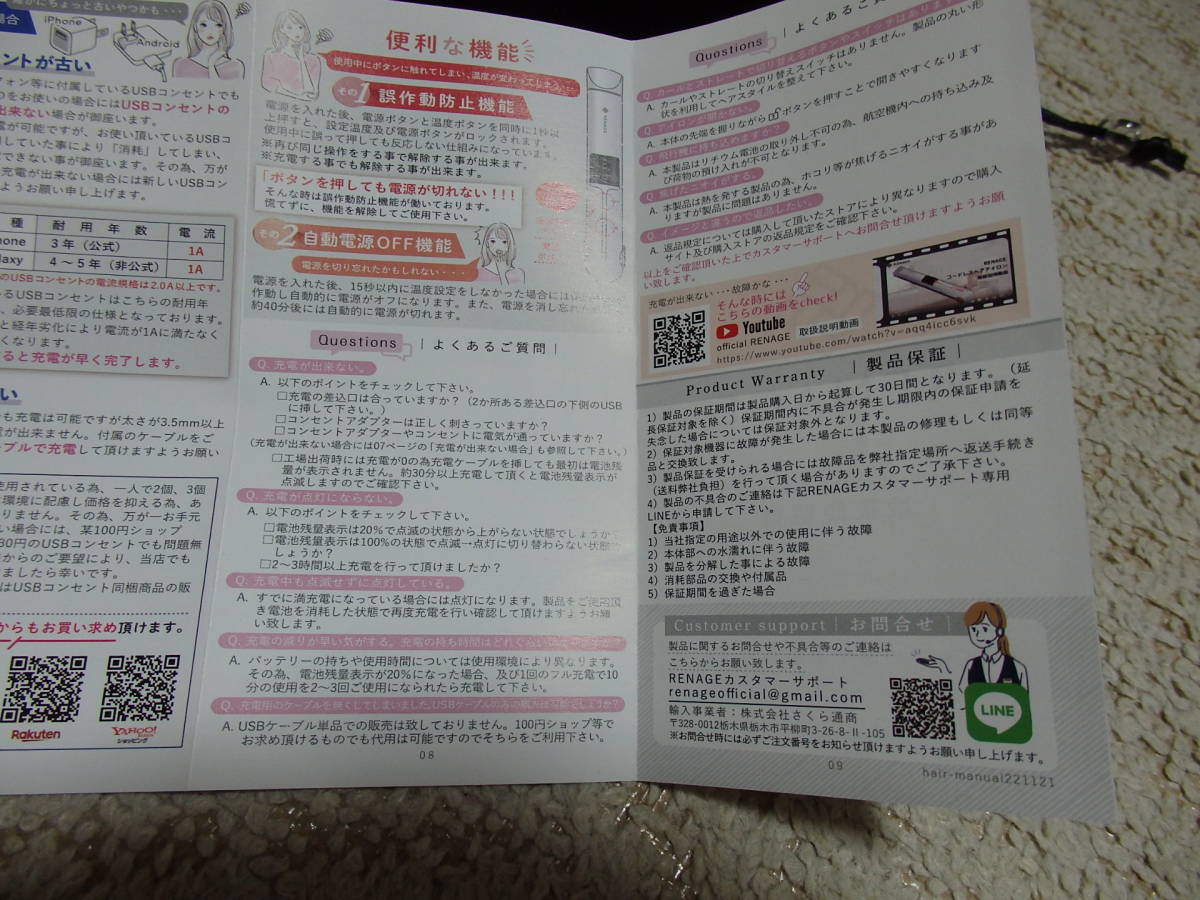 場合
iPhone
Android
ントが古い
フォン等に付属しているUSBコンセントでも
つをお使いの場合にはUSBコンセントの
出来ない場合が御座います。
電が可能ですが、お使い頂いているUSBコ
用していた事により「消耗」してしまい、
できない事が御座います。その為、万が
充電が出来ない場合には新しいUSBコン
ようお願い申し上げます。
種 耐用年数 電流
hone 3年（公式） 1A
laxy 4～5年（非公式） 1A
のUSBコンセントの電流規格は2.0A以上です。
るUSBコンセントはこちらの耐用年
、必要最低限の仕様となっております。
と経年劣化により電流が1Aに満たなく
くなります。
ると充電が早く完了します。
い
も充電は可能ですが太さが3.5mm以上
が出来ません。付属のケーブルをご
ーブルで充電して頂けますようお願い
使用されている為、一人で2個、3個
環境に配慮し価格を抑える為、あ
りません。その為、万が一お手元
い場合には、某100円ショップ
30円のUSBコンセントでも問題無
からのご要望により、当店でも
ましたら幸いです。
はUSBコンセント同梱商品の販
からもお買い求め頂けます。
Rakuten
YAHOO!
ショッピング
便利な機能
使用中にボタンに触れてしまい、温度が変わってしまう・・・
その1 誤作動防止機能
電源を入れた後、電源ボタンと温度ボタンを同時に1秒以
上押すと、設定温度及び電源ボタンがロックされます。
使用中に誤って押しても反応しない仕組みになっています。
※再び同じ操作をする事で解除する事が出来ます。
※充電する事でも解除する事が出来ます。
「ボタンを押しても電源が切れない！！！
そんな時は誤作動防止機能が働いております。
慌てずに、機能を解除してご使用下さい。
その2 自動電源OFF機能
電源を切り忘れたかもしれない・・・・
電源を入れた後、15秒以内に温度設定をしなかった場合には
作動し自動的に電源がオフになります。また、電源を消し忘れた
約40分後には自動的に電源が切れます。
Questions | よくあるご質問 |
Q. 充電が出来ない。
A. 以下のポイントをチェックして下さい。
□充電の差込口は合っていますか？（2か所ある差込口の下側のUSB
に挿して下さい。）
□コンセントアダプターは正しく刺さっていますか？
□コンセントアダプターやコンセントに電気が通っていますか？
（充電が出来ない場合には07ページの「充電が出来ない場合」も参照して下さい。）
□工場出荷時には充電が0の為充電ケーブルを挿しても最初は電池残
量が表示されません。約30分以上充電して頂くと電池残量表示が
点滅しますのでご確認下さい。
Q. 充電が点灯にならない。
A. 以下のポイントをチェックして下さい。
□電池残量表示は20%で点滅の状態から上がらない状態でしょうか？
□電池残量表示は100%の状態で点滅→点灯に切り替わらない状態で
しょうか？
□2～3時間以上充電を行って頂けましたか？
Q. 充電中も点滅せずに点灯している。
A. すでに満充電になっている場合には点灯になります。製品をご使用頂
き電池を消耗した状態で再度充電を行い確認して頂けますようお願
い致します。
Q. 充電の減りが早い気がする。充電の持ち時間はどれぐらい
A. バッテリーの持ちや使用時間については使用環境により異なります。
その為、電池残量表示が20%になった場合、及び1回のフル充電で10
分の使用を2～3回ご使用になられたら充電して下さい。
Q. 充電用のケーブルを無くしてしまいました。USBケーブルのみの購入は可能でしょうか？
A. USBケーブル単品での販売は致しておりません。100円ショップ等で
お求め頂けるものでも代用は可能ですのでそちらをご利用下さい。
08
Questions | よくあるご質問
Q. カールとストレートで切り替えるボタンやスイッチはありますか
A. カールやストレートの切り替えスイッチはありません。製品の丸い形
状を利用してヘアスタイルを整えて下さい。
Q. アイロンが開かない。
A. 本体の先端を握りながらボタンを押すことで開きやすくなります
Q. 飛行機に持ち込めますか？
A. 本製品はリチウム電池の取り外し不可の為、航空機内への持ち込み及
び荷物の預け入れが不可となります。
Q. 焦げたニオイがする。
A. 本製品は熱を発する製品の為、ホコリ等が焦げるニオイがする事があ
りますが製品に問題はありません。
Q. イメージと違うので返品したい。
A. 返品規定については購入して頂いたストアにより異なりますので購入
サイト及び購入ストアの返品規定をご確認下さい。
以上をご確認頂いた上でカスタマーサポートへお問合せ頂けますようお願
い致します。
充電が出来ない・・・故障かな・・・
そんな時には
こちらの動画をcheck!
Youtube 取扱説明動画
official RENAGE
https://www.youtube.com/watch?v=aqq4icc6svk
RENAGE
コードレスヘアアイロン
Product Warranty | 製品保証 |
1）製品の保証期間は製品購入日から起算して30日間となります。（延
長保証対象を除く）保証期間内に不具合が発生し期限内の保証申請を
失念した場合については保証対象外となります。
2）保証対象機器に故障が発生した場合には本製品の修理もしくは同等
品と交換致します。
3）製品保証を受けられる場合には故障品を弊社指定場所へ返送手続き
（送料弊社負担）を行って頂く場合がありますのでご了承下さい。
4）製品の不具合のご連絡は下記RENAGEカスタマーサポート専用
LINEから申請して下さい。
【免責事項】
1）当社指定の用途以外での使用に伴う故障
2）本体部への水濡れに伴う故障
3）製品を分解した事による故障
4）消耗部品の交換や付属品
5）保証期間を過ぎた場合
Customer support | お問合せ |
製品に関するお問合せや不具合等のご連絡は
こちらからお願い致します。
RENAGEカスタマーサポート
renageofficial@gmail.com
輸入事業者：株式会社さくら通商
〒328-0012栃木県栃木市平柳町3-26-8-Ⅱ-105
※お問合せ時には必ずご注文番号をお知らせ頂けますようお願い申し上げます。
LINE
09
hair-manual221121